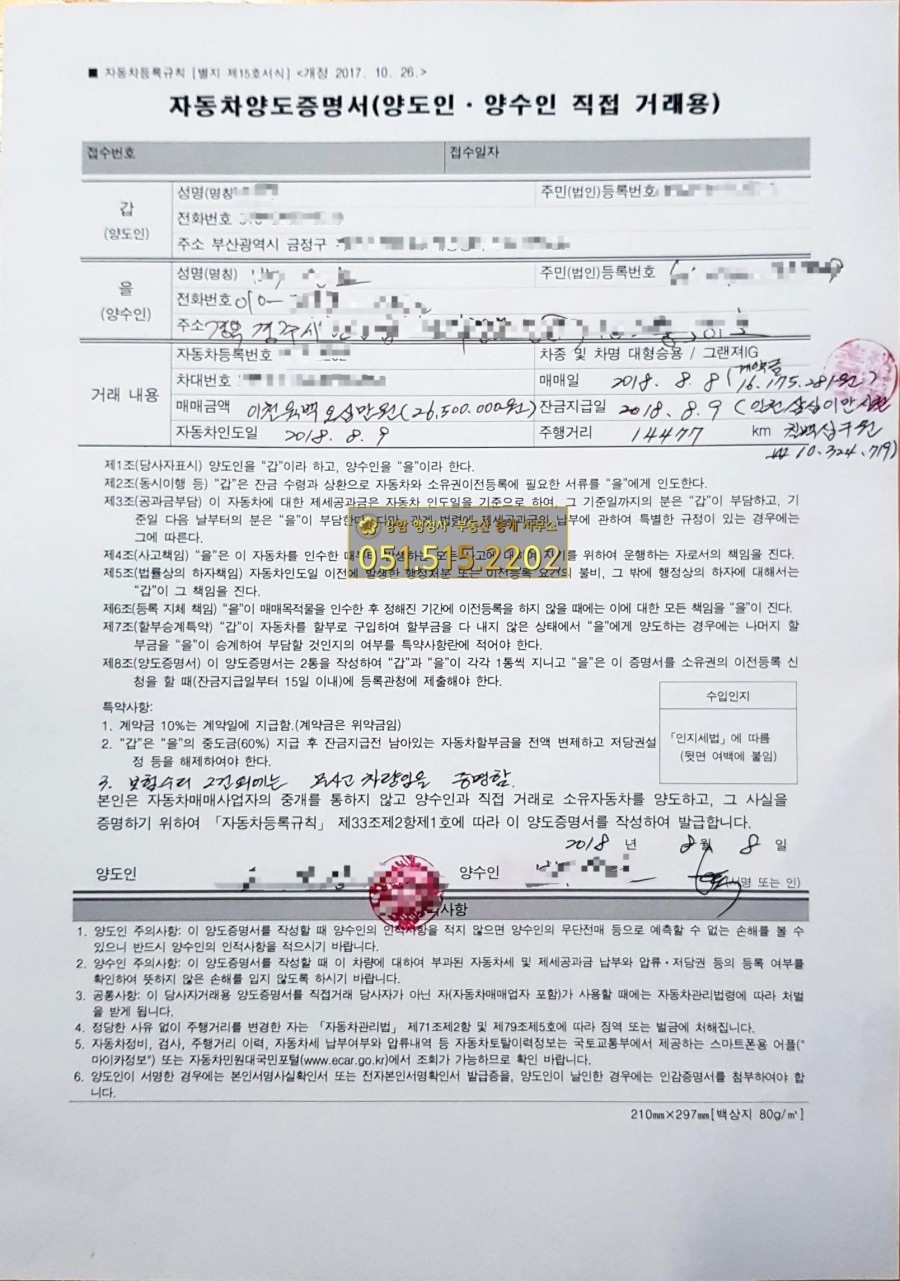 ■ 자동차등록규칙 [별지 제15호서식] <개정 2017. 10. 26.>
자동차양도증명서(양도인 · 양수인 직접 거래용)
접수번호 접수일자
갑
(양도인)
성명(명칭 주민(법인)등록번호
전화번호
주소 부산광역시 금정구
을
(양수인)
성명(명칭) 주민(법인)등록번호
전화번호 010-
주소 경북 경주시
거래 내용
자동차등록번호 차종 및 차명 대형승용 / 그랜져IG
차대번호 매매일 2018. 8. 8 (계약금 16.175.281원)
매매금액 이천육백오십만원(26,500.000원) 잔금지급일 2018. 8. 9 (일천삼십이만사천
자동차인도일 2018. 8. 9 주행거리 14477 km 칠백십구원
₩10.324.719)
제1조(당사자표시) 양도인을 "갑"이라 하고, 양수인을 "을"이라 한다.
제2조(동시이행 등) "갑"은 잔금 수령과 상환으로 자동차와 소유권이전등록에 필요한 서류를 "을"에게 인도한다.
제3조(공과금부담) 이 자동차에 대한 제세공과금은 자동차 인도일을 기준으로 하여, 그 기준일까지의 분은 "갑"이 부담하고, 기
준일 다음 날부터의 분은 "을"이 부담한다. 다만, 관계 법령에 제세공과금의 납부에 관하여 특별한 규정이 있는 경우에는
그에 따른다.
행정사 부동산 중개 사무소
051.515.2202
제4조(사고책임) "을"은 이 자동차를 인수한 때부터 발생하는 모든 사고에 대하여 자기를 위하여 운행하는 자로서의 책임을 진다.
제5조(법률상의 하자책임) 자동차인도일 이전에 발생한 행정처분 또는 이전등록 요건의 불비, 그 밖에 행정상의 하자에 대해서는
"갑"이 그 책임을 진다.
제6조(등록 지체 책임) "을"이 매매목적물을 인수한 후 정해진 기간에 이전등록을 하지 않을 때에는 이에 대한 모든 책임을 "을"이 진다.
제7조(할부승계특약) "갑"이 자동차를 할부로 구입하여 할부금을 다 내지 않은 상태에서 "을"에게 양도하는 경우에는 나머지 할
부금을 "을"이 승계하여 부담할 것인지의 여부를 특약사항란에 적어야 한다.
제8조(양도증명서) 이 양도증명서는 2통을 작성하여 "갑"과 "을"이 각각 1통씩 지니고 "을"은 이 증명서를 소유권의 이전등록 신
청을 할 때(잔금지급일부터 15일 이내)에 등록관청에 제출해야 한다.
수입인지
「인지세법」에 따름
(뒷면 여백에 붙임)
특약사항:
1. 계약금 10%는 계약일에 지급함.(계약금은 위약금임)
2. "갑"은 "을"의 중도금(60%) 지급 후 잔금지급전 남아있는 자동차할부금을 전액 변제하고 저당권설
정 등을 해제하여야 한다.
3. 보험수리 2건외에는 무사고 차량임을 증명함.
본인은 자동차매매사업자의 중개를 통하지 않고 양수인과 직접 거래로 소유자동차를 양도하고, 그 사실을
증명하기 위하여 「자동차등록규칙」 제33조제2항제1호에 따라 이 양도증명서를 작성하여 발급합니다.
2018 년 8월 8 일
양도인 양수인 (서명 또는 인)
사항
1. 양도인 주의사항: 이 양도증명서를 작성할 때 양수인의 인적사항을 적지 않으면 양수인의 무단전매 등으로 예측할 수 없는 손해를 볼 수
있으니 반드시 양수인의 인적사항을 적으시기 바랍니다.
2. 양수인 주의사항: 이 양도증명서를 작성할 때 이 차량에 대하여 부과된 자동차세 및 제세공과금 납부와 압류·저당권 등의 등록 여부를
확인하여 뜻하지 않은 손해를 입지 않도록 하시기 바랍니다.
3. 공통사항: 이 당사자거래용 양도증명서를 직접거래 당사자가 아닌 자(자동차매매업자 포함)가 사용할 때에는 자동차관리법령에 따라 처벌
을 받게 됩니다.
4. 정당한 사유 없이 주행거리를 변경한 자는 「자동차관리법」 제71조제2항 및 제79조제5호에 따라 징역 또는 벌금에 처해집니다.
5. 자동차정비, 검사, 주행거리 이력, 자동차세 납부여부와 압류내역 등 자동차토탈이력정보는 국토교통부에서 제공하는 스마트폰용 어플("
마이카정보") 또는 자동차민원대국민포털(www.ecar.go.kr)에서 조회가 가능하므로 확인 바랍니다.
6. 양도인이 서명한 경우에는 본인서명사실확인서 또는 전자본인서명확인서 발급증을, 양도인이 날인한 경우에는 인감증명서를 첨부하여야 합
니다.
210㎜×297㎜[백상지 80g/㎡]